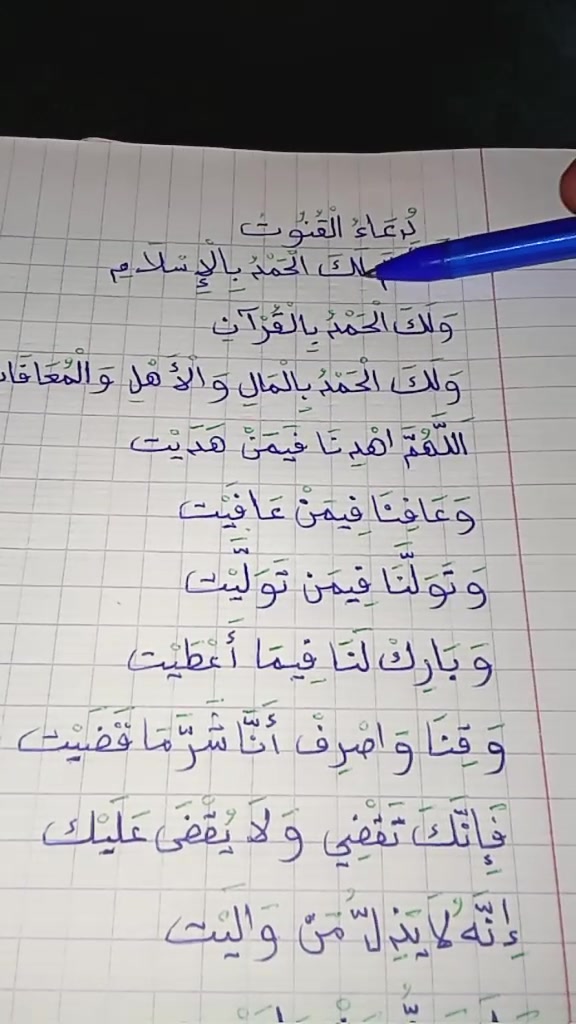 دُعَاءُ الْقُنُوتْ
لَكَ الْحَمْدُ بِالْإِسْلَامِ
وَلَكَ الْحَمْدُ بِالْقُرْآنِ
وَلَكَ الْحَمْدُ بِالْمَالِ وَالْأَهْلِ
اَللَّهُمَّ اهْدِنَا فِيمَنْ هَدَيْت
وَعَافِنَا فِيمَنْ عَافَيْت
وَتَوَلَّنَا فِيمَن تَوَلَّيْت
وَبَارِكْ لَنَا فِيمَا أَعْطَيْت
وَقِنَا وَاصْرِفْ أَنَّا شَرَّ مَا قَضَيْت
فَإِنَّكَ تَقْضِي وَلَا يُقْضَى عَلَيْك
إِنَّهُ لَا يَذِلُّ مَنْ وَالَيْت